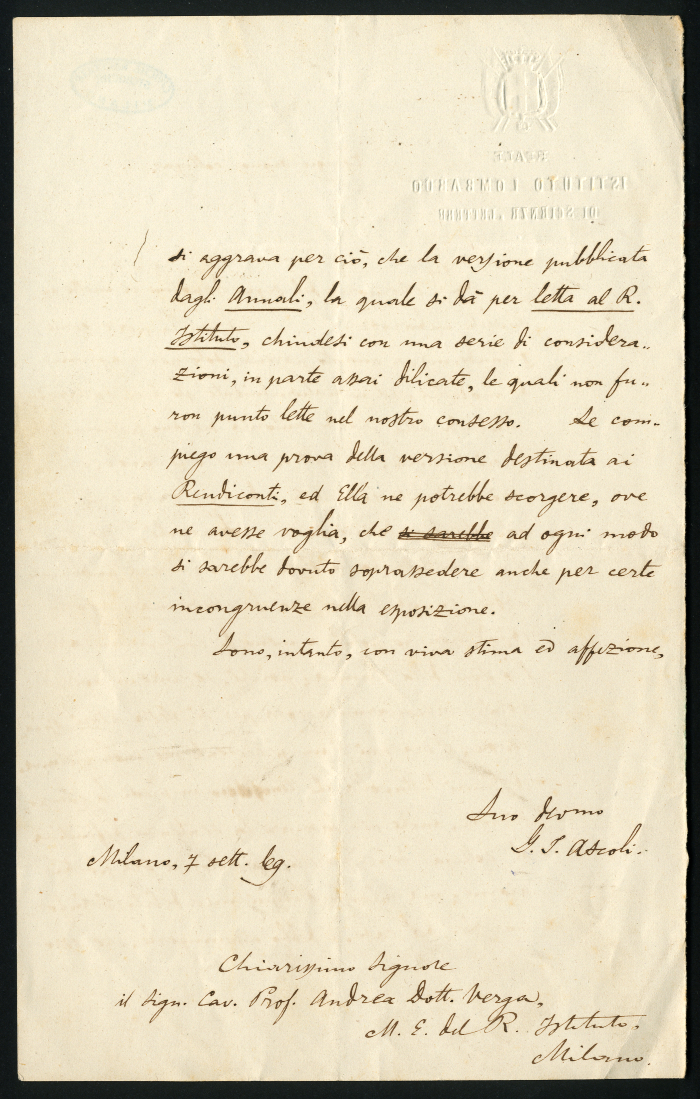 REALE
ISTITUTO LOMBARDO
DI SCIENZE E LETTERE
si aggrava per ciò, che la versione pubblicata
dagli Annali, la quale si dà per letta al R.
Istituto, chiudesi con una serie di considera..
zioni, in parte assai dilicate, le quali non fu..
ron punto lette nel nostro consesso. Le com-
piego una prova della versione destinata ai
Rendiconti, ed Ella ne potrebbe scorgere, ove
ne avesse voglia, che si sarebbe ad ogni modo
si sarebbe dovuto soprassedere anche per certe
incongruenze nella esposizione.
Sono, intanto, con viva stima ed affezione,
Suo devmo
G. I. Ascoli.
Milano, 7 sett. 69.
Chiarissimo Signore
il Sign. Cav. Prof. Andrea Dott. Verga,
M. E. del R. Istituto,
Milano.